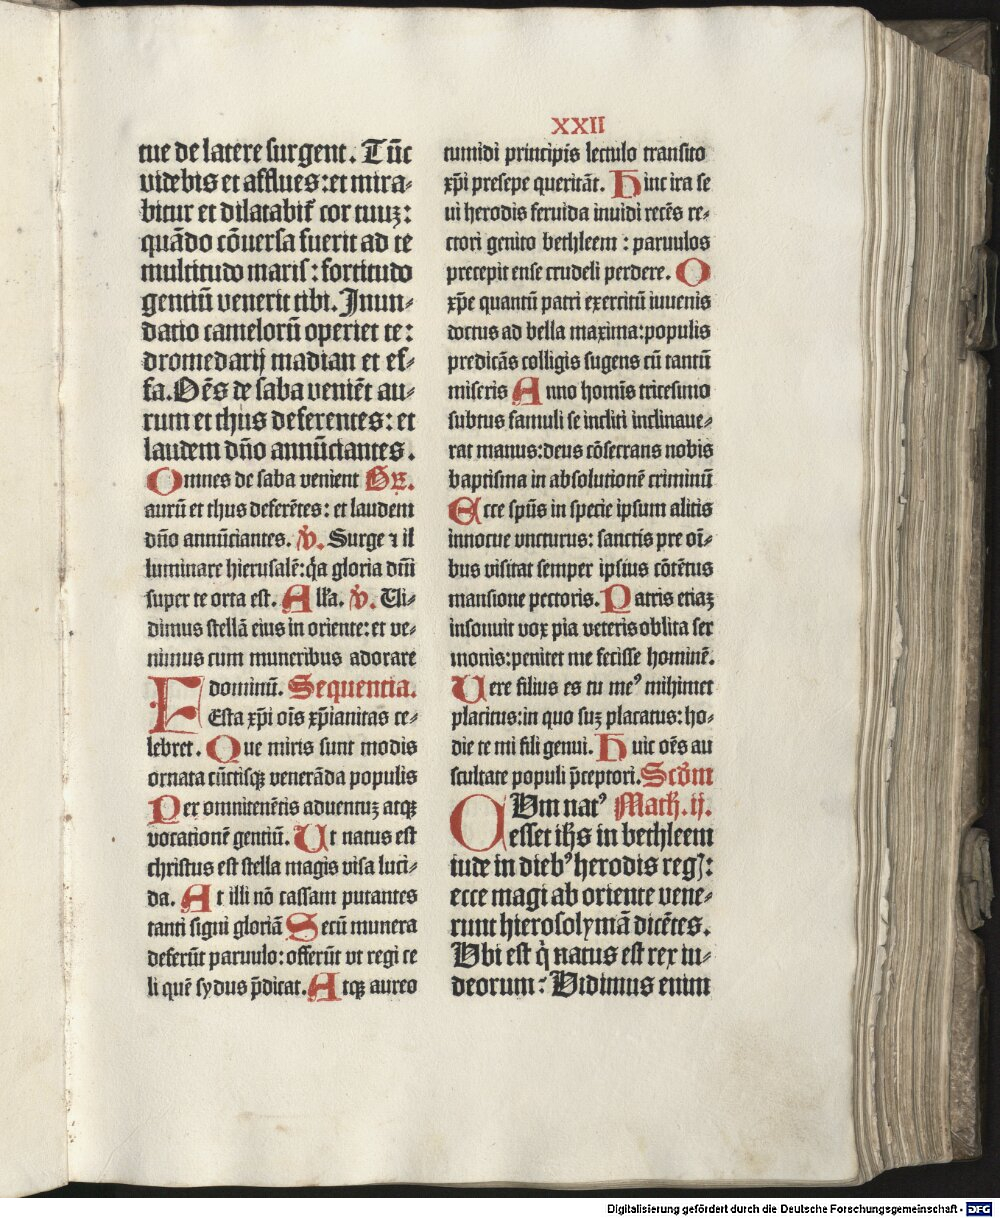 XXII
tue de latere surgent. Tūc
videbis et afflues: et mira⸗
bitur et dilatabit᷑ cor tuuꝫ:
quādo cōuersa fuerit ad te
multitudo maris: fortitudo
gentiū venerit tibi. Inun⸗
datio camelorū operiet te:
dromedarij madian et ef⸗
fa. Oēs de saba veniēt au⸗
rum et thus deferentes: et
laudem dño annūctantes.
Omnes de saba venient
aurū et thus deferētes: et laudem
dño annūciantes. v̓. Surge ⁊ il
luminare hierusalē: q̄a gloria dñi
super te orta est. Alľa. v̓. Vi⸗
dimus stellā eius in oriente: et ve⸗
nimus cum muneribus adorare
dominū. Sequentia.
FEsta xp̄i oīs xp̄ianitas ce⸗
lebret. Que miris sunt modis
ornata cūctisqꝫ venerāda populis
Per omnitenētis aduentuꝫ atqꝫ
vocationē gentiū. Ut natus est
christus est stella magis visa luci⸗
da. At illi nō cassam putantes
tanti signi gloriā Secū munera
deferūt paruulo: offerūt vt regi ce
li quē sydus p̄dicat. Atqꝫ aureo
tumidi principis lectulo transito
xp̄i presepe queritāt. Hinc ira se
ui herodis feruida inuidi recēs re⸗
ctori genito bethleem: paruulos
precepit ense crudeli perdere. O
xp̄e quantū patri exercitū iuuenis
doctus ad bella maxima: populis
predicās colligis sugens cū tantū
miseris Anno homīs tricesimo
subtus famuli se incliti inclinaue⸗
rat manus: deus cōsecrans nobis
baptisma in absolutionē criminū
Ecce spūs in specie ipsum alitis
innocue vncturus: sanctis pre oī⸗
bus visitat semper ipsius cōtētus
mansione pectoris. Patris etiaꝫ
insonuit vox pia veteris oblita ser
monis: penitet me fecisse hominē.
Vere filius es tu meꝰ mihimet
placitus: in quo suꝫ placatus: ho⸗
die te mi fili genui. Huic oēs au
scultate populi p̄ceptori. Scd̄m
CUm natꝰ Math. ij.
esset ih̄s in bethleem
iude in diebꝰ herodis regꝭ:
ecce magi ab oriente vene⸗
runt hierosolymā dicētes.
Ubi est q̇ natus est rex iu⸗
deorum? Vidimus enim
Digitalisierung gefördert durch die Deutsche Forschungsgemeinschaft - DFG